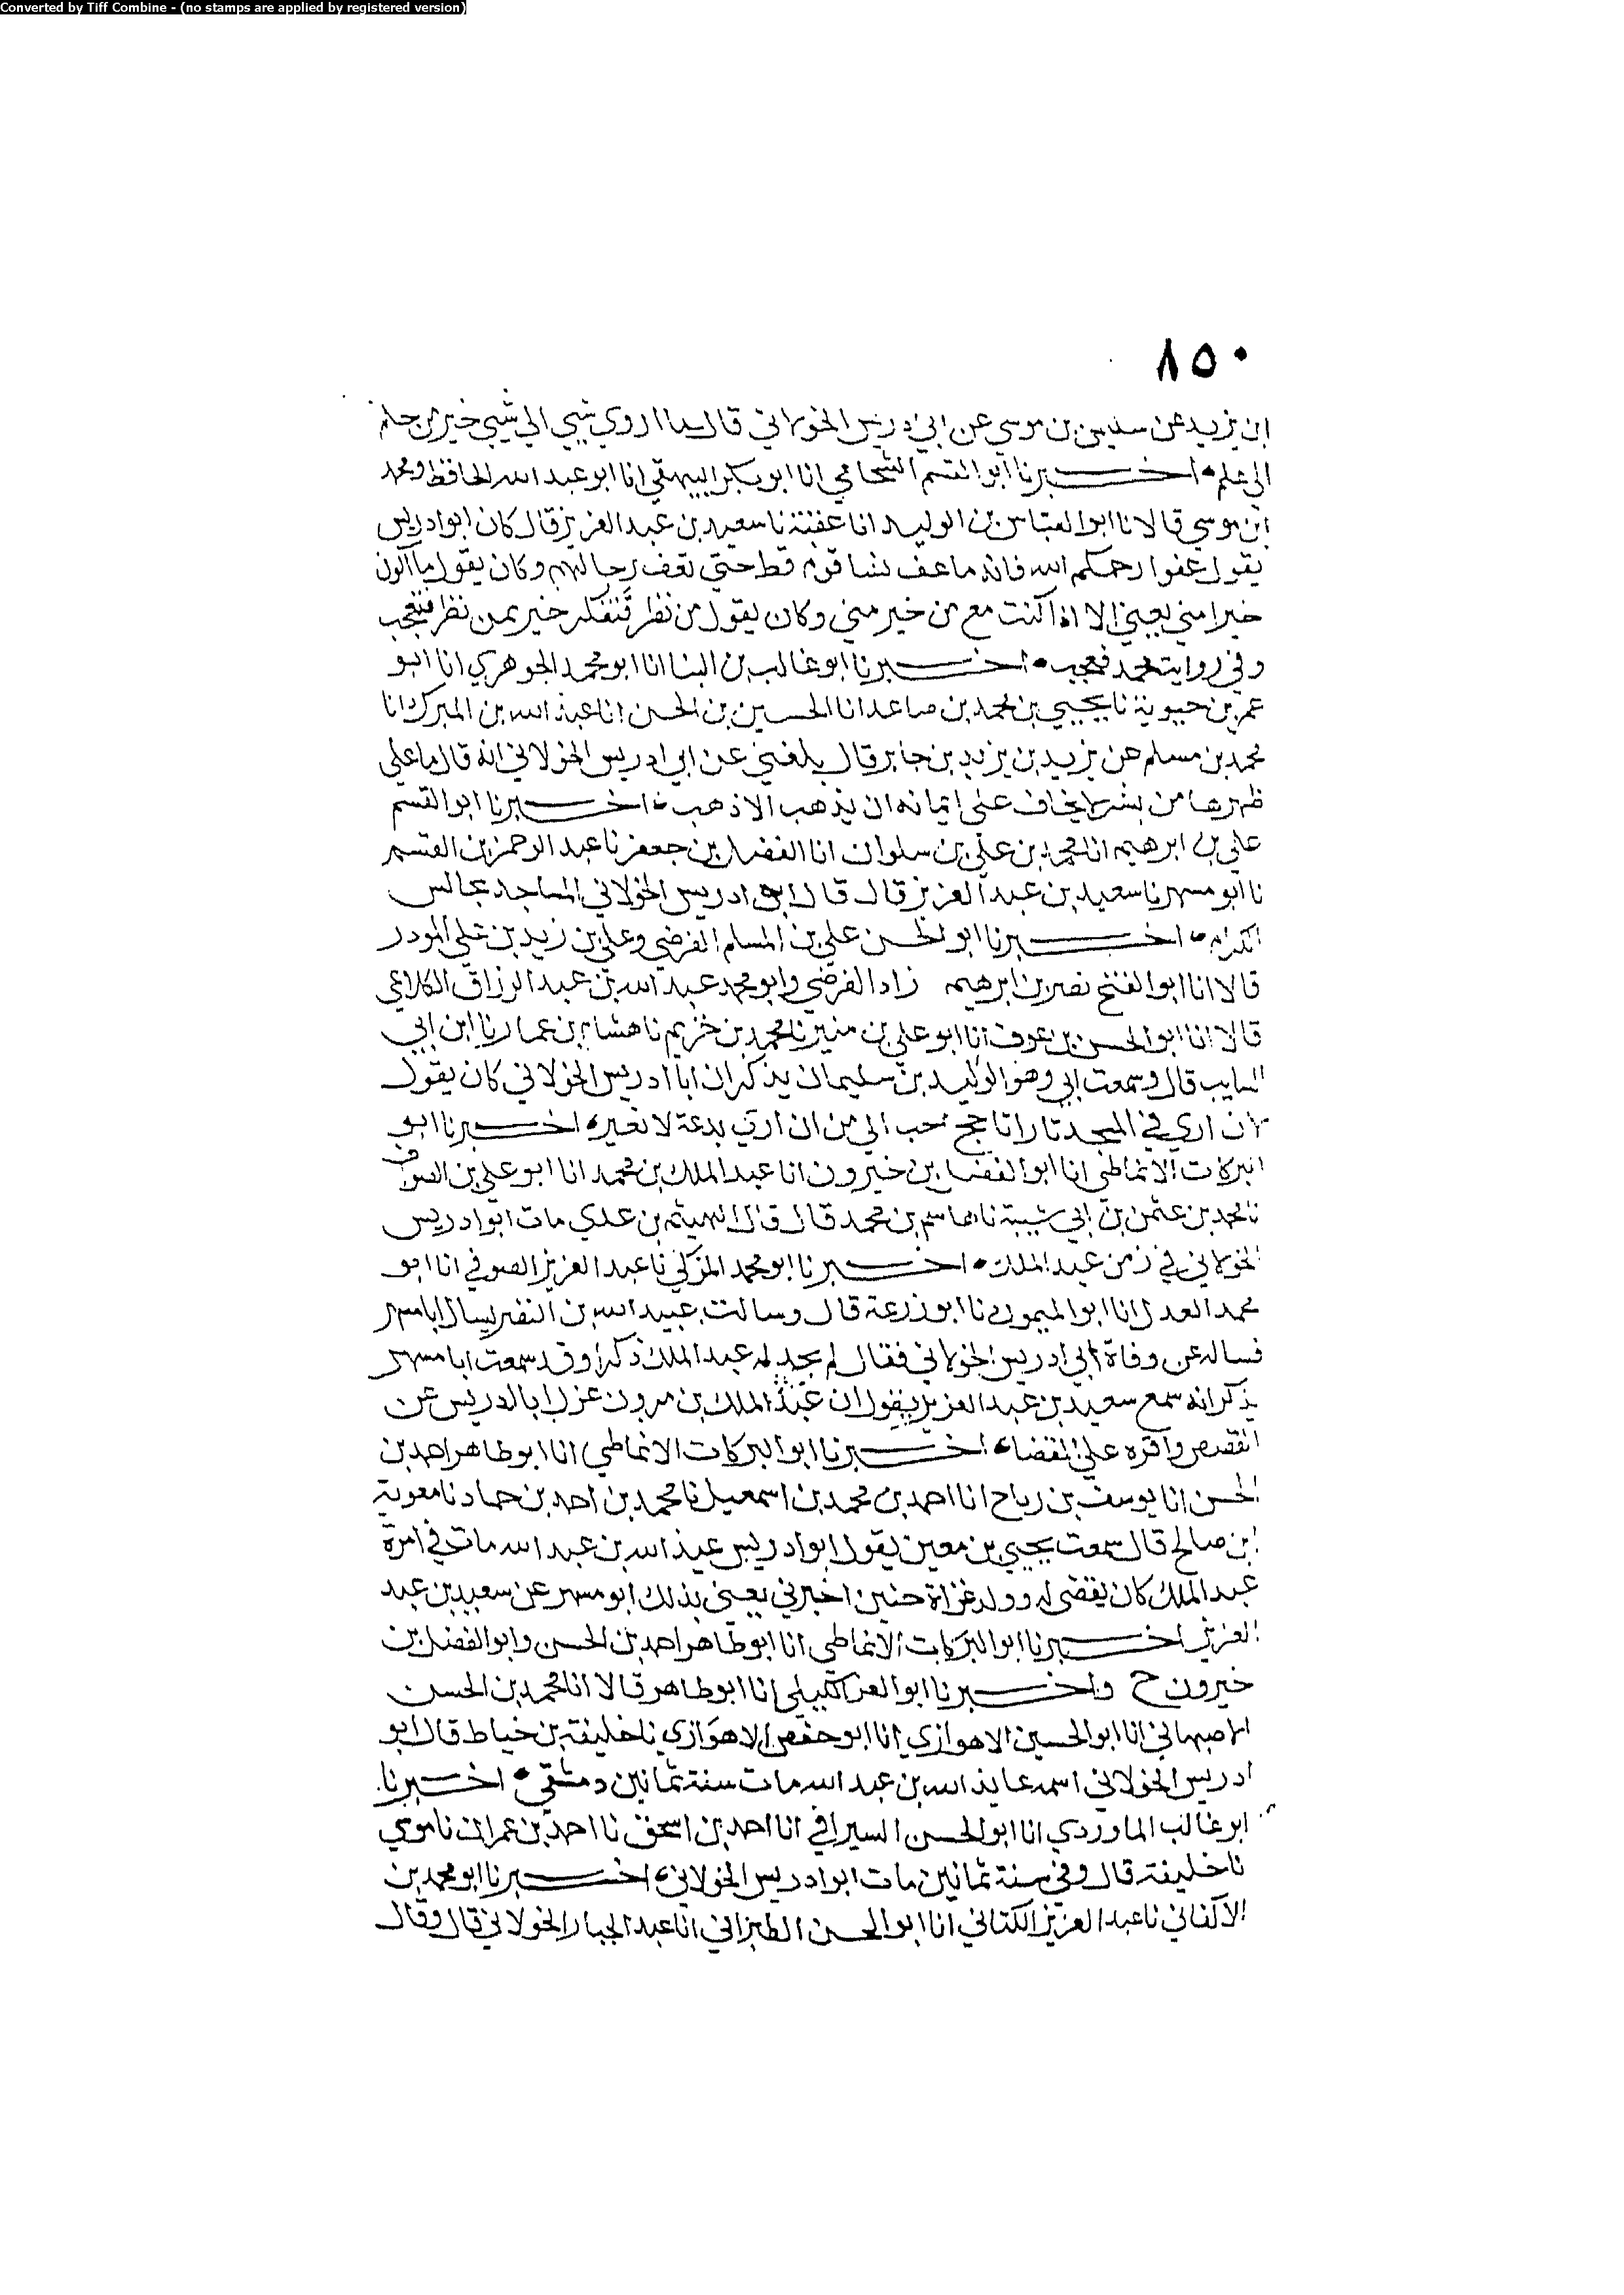 Converted by Tiff Combine - (no stamps are applied by registered version)
٨٥٠
ابن يزيد عن سليمن بن موسي عن ابي ادريس الخولاني قال ما اروي شي الي شي خير من حلم
الي علم • اخبرنا ابو القسم الشحامي انا ابو بكر البيهقي انا ابو عبد الله الحافظ ومحمد
ابن موسي قالا نا ابو العباس بن الوليد انا عقبة نا سعيد بن عبد العزيز قال كان ابو ادريس
يقول عفوا رحمكم الله فانه ما عف نسا قوم قط حتي تعف رجالهم وكان يقول ما اكون
خيرا مني يعني الا اذا كنت مع من خير مني وكان يقول من نظر فتفكر خير ممن نظر فتعجب
وفي رواية محمد فعجب • اخبرنا ابو غالب بن البنا انا ابو محمد الجوهري انا ابو
عمر بن حيوية نا يحيي بن محمد بن صاعد انا الحسين بن الحسن انا عبد الله بن المبرك انا
محمد بن مسلم عن يزيد بن يزيد بن جابر قال بلغني عن ابي ادريس الخولاني انه قال ما علي
ظهرها من بشر لا يخاف علي ايمانه ان يذهب الا ذهب • اخبرنا ابو القسم
علي بن ابرهيم انا محمد بن علي بن سلوان انا الفضل بن جعفر نا عبد الرحمن بن القسم
نا ابو مسهر نا سعيد بن عبد العزيز قال قال ابو ادريس الخولاني المساجد مجالس
الكرام • اخبرنا ابو الحسن علي بن المسلم الفرضي وعلي بن زيد بن علي المودر
قالا انا ابو الفتح نصر بن ابرهيم زاد الفرضي وابو محمد عبد الله بن عبد الرزاق الكلاعي
قالا انا ابو الحسن بن عوف انا ابو علي بن منير نا محمد بن خريم نا هشام بن عمار نا ابن ابي
السايب قال وسمعت ابي وهو الوليد بن سليمان يذكر ان ابا ادريس الخولاني كان يقول
لان اري في المسجد نارا تاجج احب الي من ان اري بدعة لا تغير • اخبرنا ابو
البركات الانماطي انا ابو الفضل بن خيرون انا عبد الملك بن محمد انا ابو علي بن الصواف
نا محمد بن عثمن بن ابي شيبة نا هاسم بن محمد قال قال الهيثم بن عدي مات ابو ادريس
الخولاني في زمن عبد الملك • اخبرنا ابو محمد المزكي نا عبد العزيز الصوفي انا ابو
محمد العدل انا ابو الميمون نا ابو زرعة قال وسالت عبيد الله بن النضر يسال ابا مسهر
فساله عن وفاة ابي ادريس الخولاني فقال لم يجد له عبد الملك ذكرا وقد سمعت ابا مسهر
يذكر انه سمع سعيد بن عبد العزيز يقول ان عبد الملك بن مرون عزل ابا ادريس عن
القصص واقره علي القضا • اخبرنا ابو البركات الانماطي انا ابو طاهر احمد بن
الحسن انا يوسف بن رباح انا احمد بن محمد بن اسمعيل نا محمد بن احمد بن حماد نا معوية
ابن صالح قال سمعت يحيي بن معين يقول ابو ادريس عيذ الله بن عبد الله مات في امرة
عبد الملك كان يقضي له وولد غزاة حنين اخبرني يعني بذلك ابو مسهر عن سعيد بن عبد
العزيز اخبرنا ابو البركات الانماطي انا ابو طاهر احمد بن الحسن وابو الفضل بن
خيرون ح واخبرنا ابو العز الكيلي انا ابو طاهر قالا انا محمد بن الحسن
الاصبهاني انا ابو الحسين الاهوازي انا ابو حفص الاهوازي نا خليفة بن خياط قال ابو
ادريس الخولاني اسمه عايذ الله بن عبد الله مات سنة ثمانين دمشقي • اخبرنا
ابو غالب الماوردي انا ابو الحسن السيرافي انا احمد بن اسحق نا احمد بن عمران نا موسي
نا خليفة قال وفي سنة ثمانين مات ابو ادريس الخولاني • اخبرنا ابو محمد بن
الاكفاني نا عبد العزيز الكتاني انا ابو الحسن الطبراني انا عبد الجبار الخولاني قال وقال